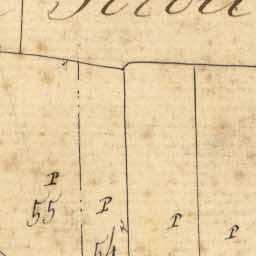 P
55
P
54
P
P